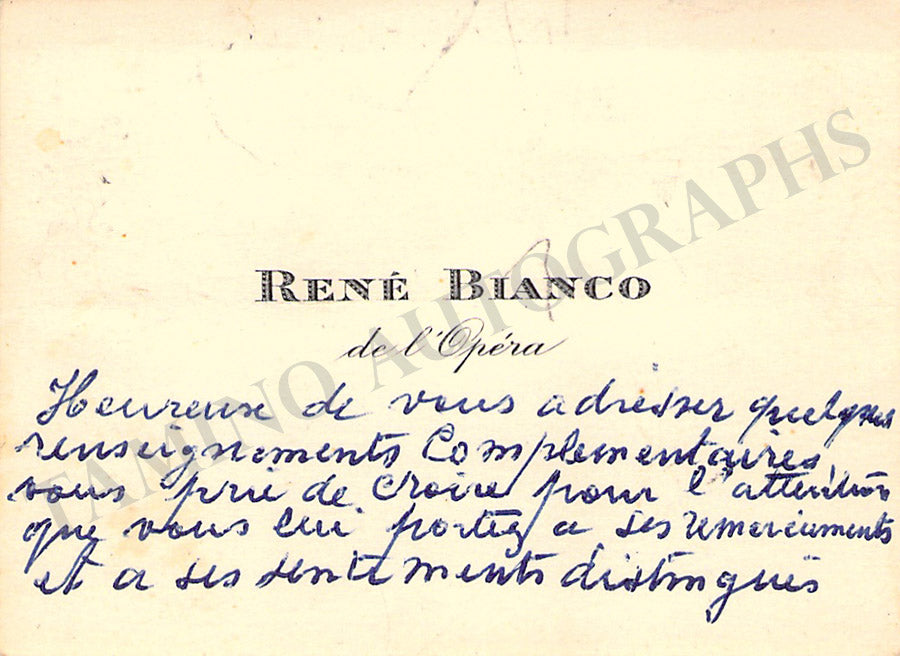 RENÉ BIANCO
de l'Opéra
Heureux de vous adresser quelques
renseignements complementaires,
vous prie de croire pour l'attention
que vous lui portez a ses remerciements
et a ses sentiments distingués
TAMINO AUTOGRAPHS